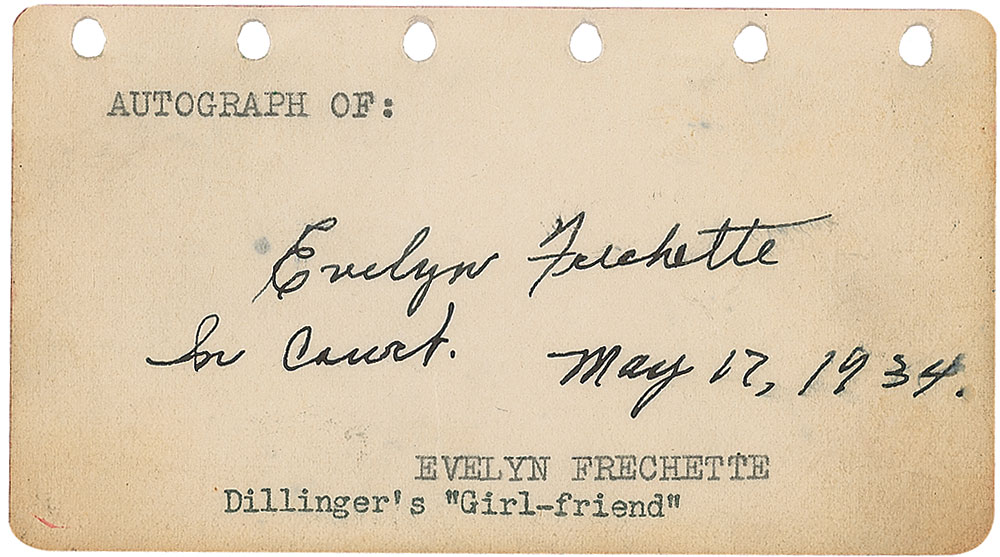 AUTOGRAPH OF:
Evelyn Frechette
In Court. May 17, 1934.
EVELYN FRECHETTE
Dillinger's "Girl-friend"